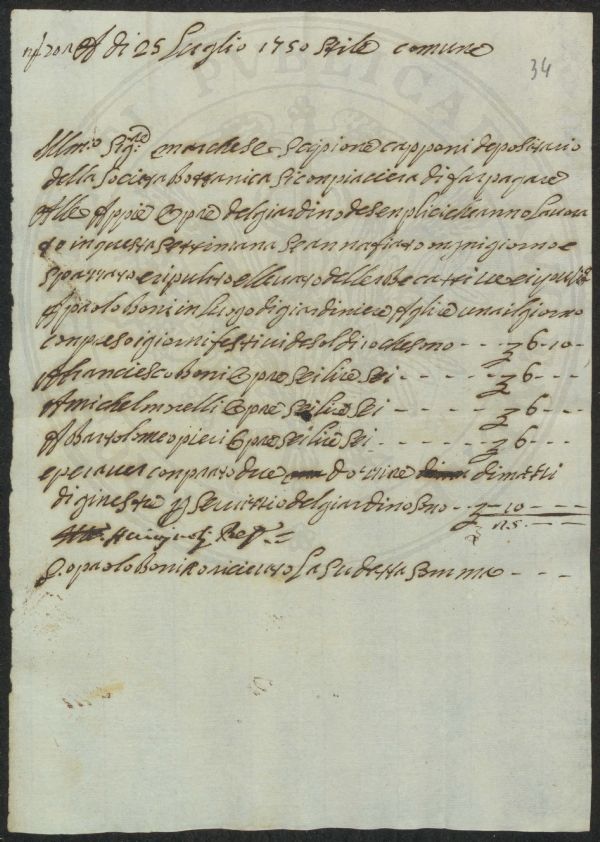 A di 25 Luglio 1750 Stile comune
34
Illmo Sigre marchese Scipione capponi depositario
della Societta bottanica Si conpiacera di far pagare
Alle Appiè Opre del giardino de senplici che anno Lavora
to in questa Settimana Se annafiato ongni giorno e
Spazzato e ripulito e lleuato dell erbe cattiue e ripulito
A paolo boni in Luogo di giardiniere A lire una il giorno
conpreso i giorni festiui de soldi 10 che sono - - - 6 - 10 -
A franciesco boni Opre Sei lire Sei - - - - - - 6 - - -
A michel morelli Opre Sei lire Sei - - - - - 6 - - -
A bartolomeo pieri Opre Sei lire Sei - - - - - 6 - - -
e per auer conprato due dozzine di mazzi
di ginestre p seruitio del giardino Sono - - - 10 - - -
25 - - -
Io paolo boni o riceuuto La Sudetta Somma - - -
PUBLICA